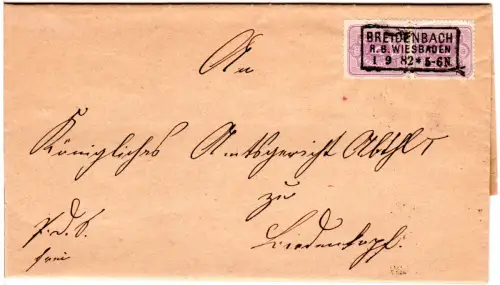 BREIDENBACH
R.B. WIESBADEN
1 9 82 * 5-6N.
An
Königliches Amtsgericht Abthl I
zu
Biedenkopf.
frei